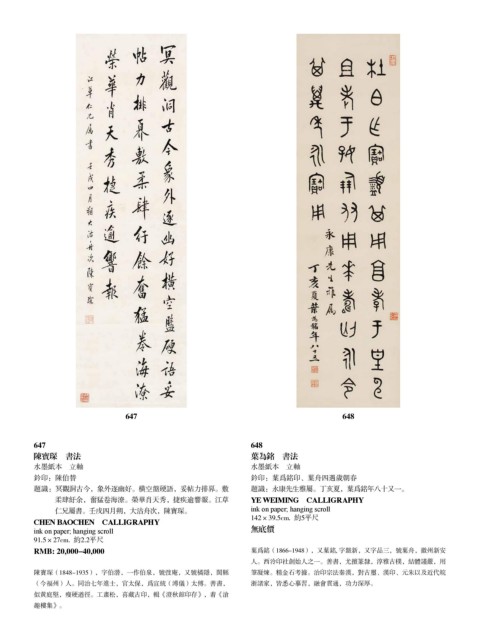 冥觀洞古今象外逐幽好橫空盤硬語妥
帖力排奡敷柔肆紆餘奮猛卷海潦
榮華肖天秀捷疾逾響報
江草仁兄屬書 壬戌四月朔大沽舟次 陳寶琛
647
杜白乍寶盨其用享孝于皇申
且考于好朋友用𠦪壽匄永令
其萬年永寶用
永康先生雅屬
丁亥夏葉為銘年八十又一
648
647
陳寶琛 書法
水墨紙本 立軸
鈐印：陳伯替
題識：冥觀洞古今，象外逐幽好。橫空盤硬語，妥帖力排奡。敷
柔肆紆餘，奮猛卷海潦。榮華肖天秀，捷疾逾響報。江草
仁兄屬書。壬戌四月朔，大沽舟次，陳寶琛。
CHEN BAOCHEN CALLIGRAPHY
ink on paper; hanging scroll
91.5 × 27cm. 約2.2平尺
RMB: 20,000–40,000
陳寶琛（1848–1935），字伯潛，一作伯泉，號弢庵，又號橘隱，閩縣
（今福州）人。同治七年進士，官太保，爲宣統（溥儀）太傅。善書，
似黃庭堅，瘦硬遒徑。工畫松，喜藏古印，輯《澂秋館印存》，著《滄
趣樓集》。
648
葉為銘 書法
水墨紙本 立軸
鈐印：葉爲銘印、葉舟四遇歲朝春
題識：永康先生雅屬。丁亥夏，葉爲銘年八十又一。
YE WEIMING CALLIGRAPHY
ink on paper; hanging scroll
142 × 39.5cm. 約5平尺
無底價
葉爲銘（1866–1948），又葉銘，字盤新，又字品三，號葉舟，徽州新安
人。西泠印社創始人之一。善書，尤擅篆隸，淳雅古樸，結體謹嚴，用
筆凝煉。精金石考據。治印宗法秦漢，對古璽、漢印、元朱以及近代皖
浙諸家，皆悉心摹習，融會貫通，功力深厚。